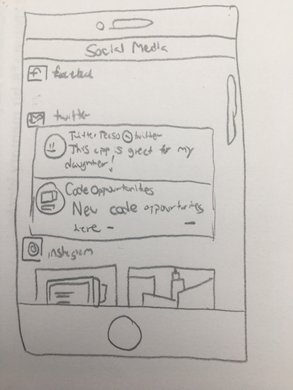 Social Media
twitter
Twitter Perso @ twitter
This app is great for my
daughter!
Code Oppourtunities
New code oppourtunities
here -